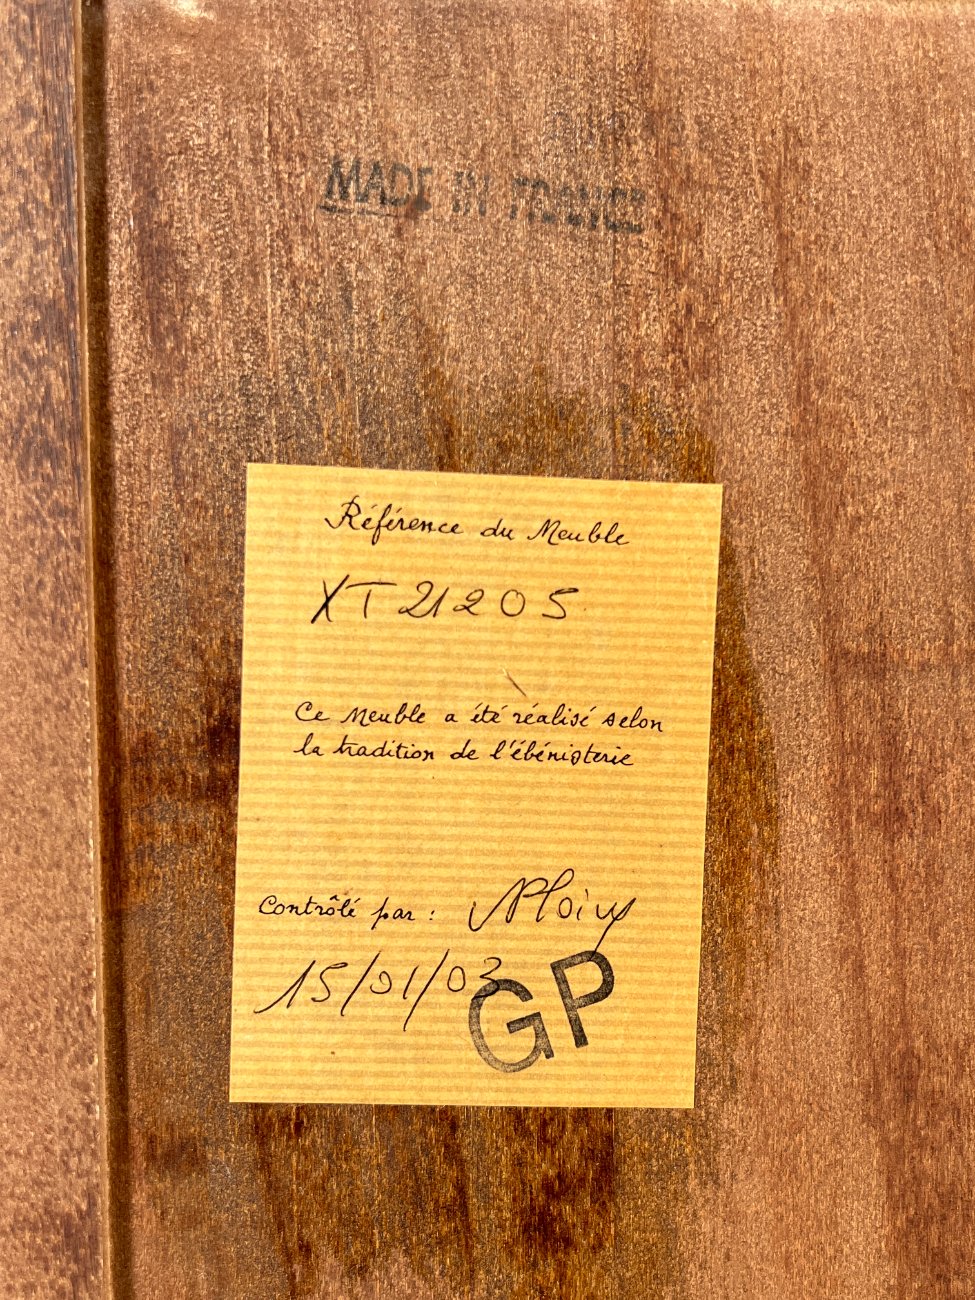 MADE IN FRANCE
Référence du Meuble
XT21205
Ce Meuble a été réalisé selon
la tradition de l'ébénisterie
Contrôlé par :
15/01/03
GP